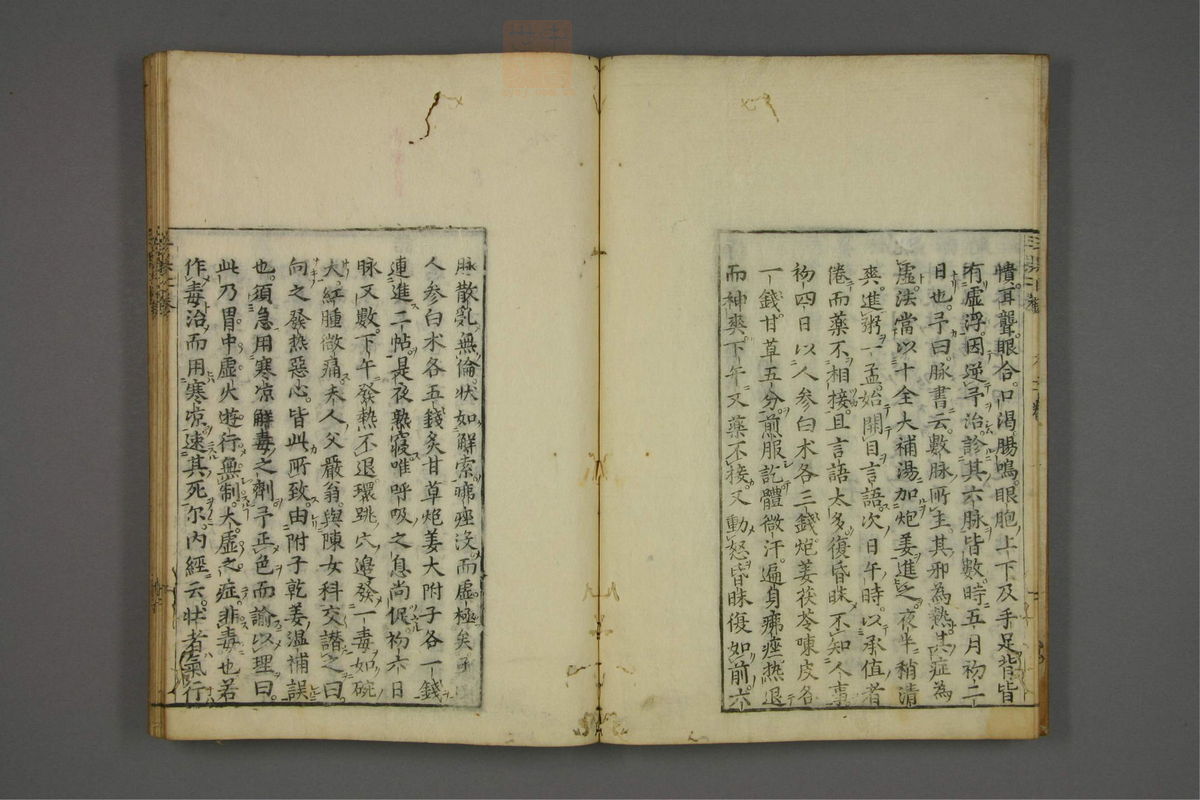 憒耳聾眼合口渇腸鳴眼胞上下及手足背皆
有虛浮因逆予治診其六脉皆數時五月初二
日也予曰脉書云數脉所主其邪為熱其症為
虛法當以十全大補湯加炮姜進之夜半稍清
爽進粥一盂始開目言語次日午時以承值者
倦而藥不相接且言語太多復昏昧不知人事
初四日以人参白朮各三錢炮姜茯苓陳皮各
一錢甘草五分煎服訖體微汗遍身痱痤熱退
而神爽下午又藥不接又動怒昏昧復如前六
脉散亂無倫状如解索痱痤沒而虛極矣予
人参白朮各五錢炙甘草炮姜大附子各一錢
連進二帖是夜熟寢唯呼吸之息尚促初六日
脉又數下午發熱不退環跳穴邉發一毒如碗
大紅腫微痛夫人父嚴翁與陳女科交譛之曰
向之發熱惡心皆此所致由附子乾姜温補誤
也須急用寒凉解毒之劑予正色而諭以理曰
此乃胃中虛火遊行無制大虛之症非毒也若
作毒治而用寒凉速其死尔内經云壮者氣行